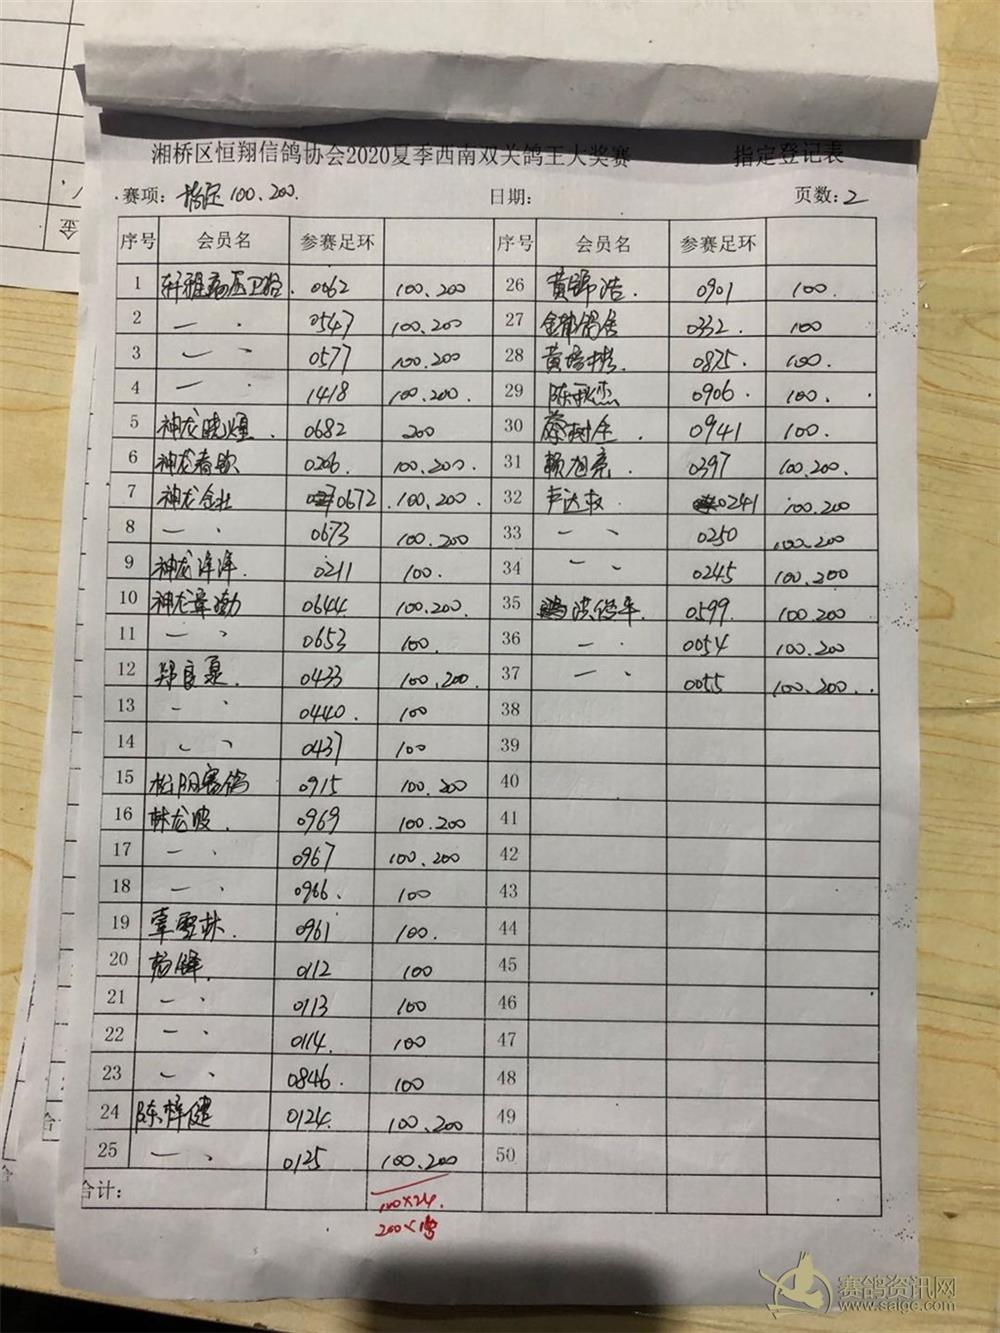 湘桥区恒翔信鸽协会2020夏季西南双关鸽王大奖赛 指定登记表
赛项: 指定100.200. 日期: 页数: 2
序号 会员名 参赛足环 序号 会员名 参赛足环
1 0062 100.200 26 黄锦浩. 0901 100.
2 一 、 0547 100.200 27 0332. 100
3 一 、 0577 100.200 28 0875. 100.
4 一 、 1418 100.200. 29 0906. 100.
5 神龙晓煌. 0682 200 30 蔡树生 0941 100.
6 神龙春钦 0206. 100.200. 31 赖旭亮. 0397 100.200.
7 神龙金壮 0672 100.200. 32 0241 100.200
8 一 、 0673 100.200 33 一 、 0250 100.200
9 神龙泽泽. 0211 100. 34 一 、 0245 100.200
10 神龙章勋 0644 100.200. 35 洪俊平 0599. 100.200
11 一 、 0653 100. 36 一 、 0054 100.200
12 郑良夏. 0433 100.200. 37 一 、 0055 100.200..
13 一 、 0440. 100 38
14 一 、 0437 100 39
15 松阳赛鸽 0915 100.200 40
16 林龙波. 0969 100.200 41
17 一 、 0967 100.200 42
18 一 、 0966. 100 43
19 0961 100. 44
20 杨锋. 0112 100 45
21 一 、 0113 100 46
22 一 、 0114. 100 47
23 一 、 0846. 100 48
24 陈梓健 0124. 100.200 49
25 一 、 0125 100.200 50
合计:
100×24.
200×
金
合
赛鸽资讯网
www.saigc.com